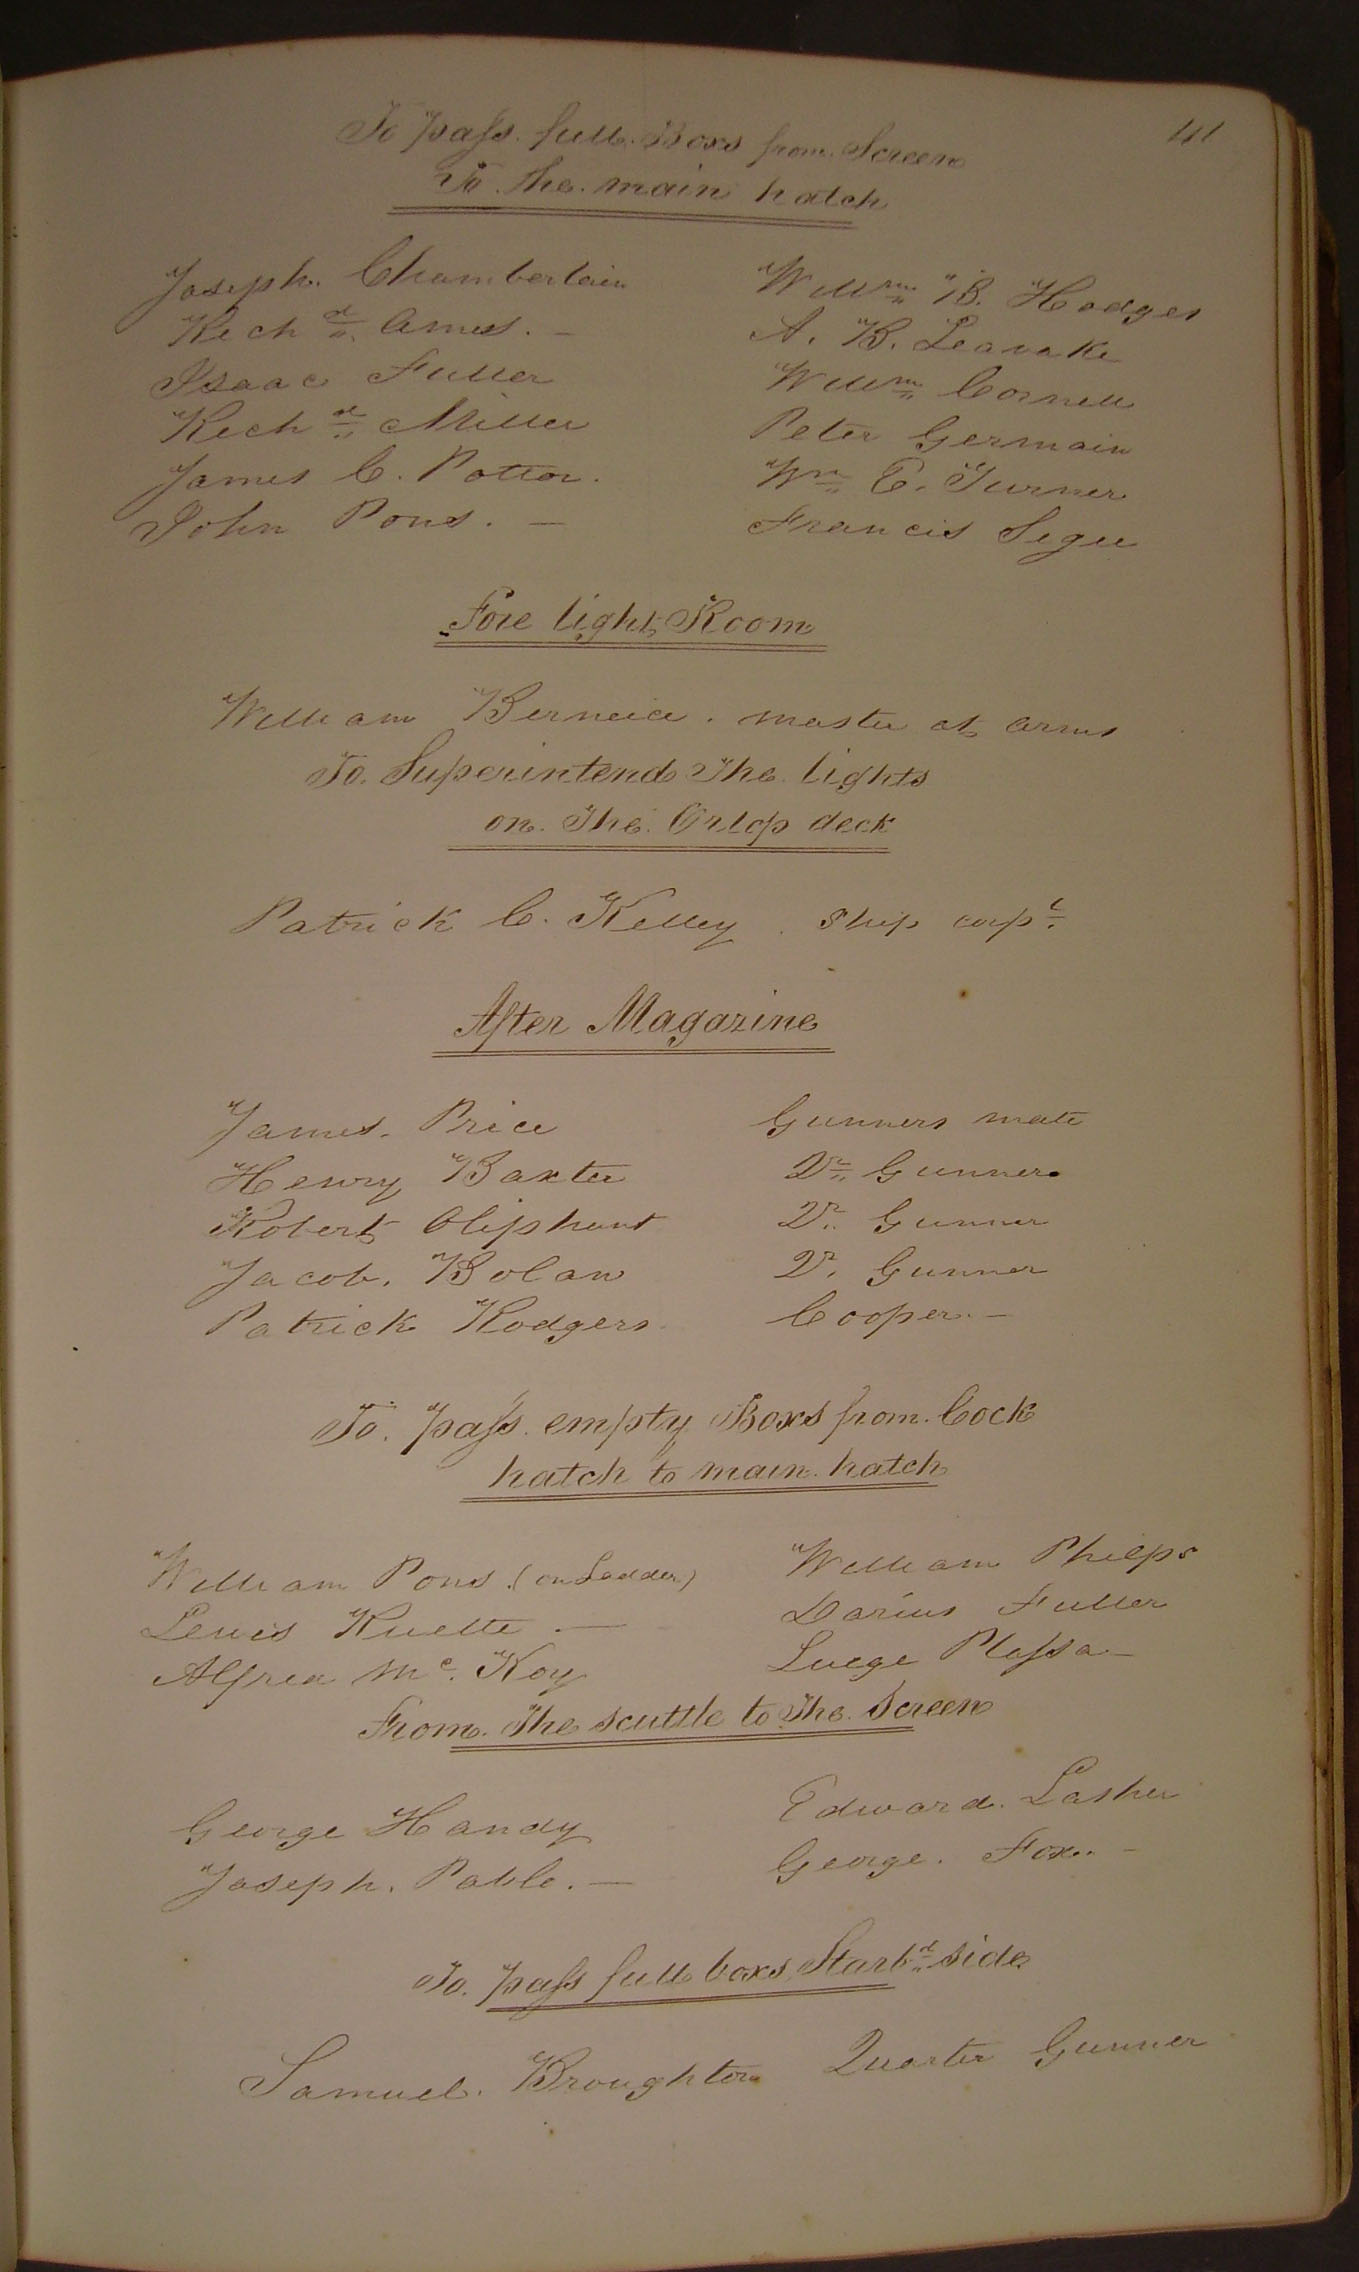 41
To pass full Boxs from Screen
To the main hatch
Joseph Chamberlain Willm B. Hodges
Richd Ames. – A. B. Leavake
Isaac Fuller Willm Cornell
Richd Miller Peter Germain
James C. Potter. Wm E. Turner
John Pons. – Francis Segee
Fore light Room
William Berneice. master at arms
To Superintend The lights
on The Orlop deck
Patrick C. Kelley Ship corpl
After Magazine
James Price Gunners mate
Henry Baxter Qr Gunner
Robert Oliphant Qr Gunner
Jacob Bolan Qr Gunner
Patrick Rodgers Cooper. –
To pass empty Boxs from Cock
hatch to main hatch
William Pons (on Ladder) William Philps
Lewis Ruelte – Darius Fuller
Alfred Mc. Koy Luege Plassa –
From The scuttle to The Screen
George Handy Edward Lasher
Joseph Pablo. – George Fox. –
To pass full boxs Starbd side
Samuel Broughton Quarter Gunner